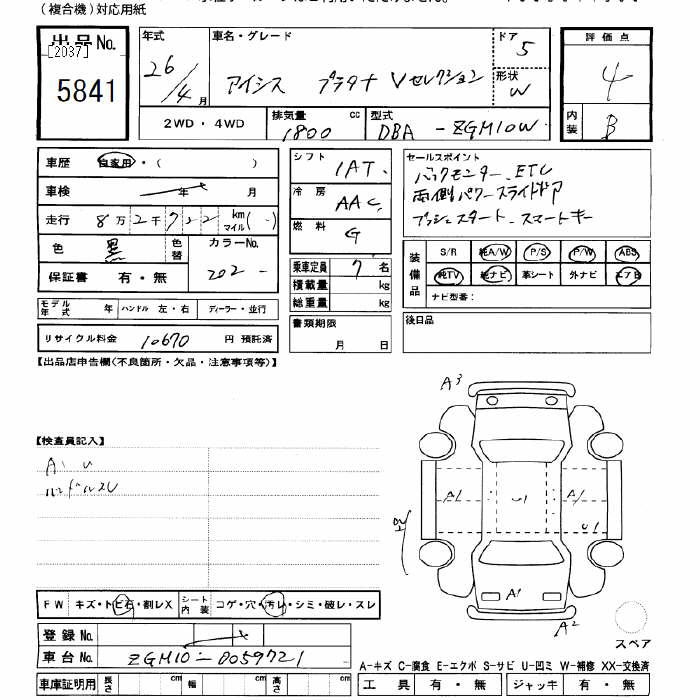 (複合機)対応用紙
出品No.
[2037]
5841
年式 26/4月
車名・グレード アイシス プラタナ Vセレクション
ドア 5
形状 W
評価点 4
内装 B
2WD・4WD
排気量 1800 cc
型式 DBA - ZGM10W
車歴 自家用・( )
車検 年 月
走行 8万2千722 km マイル(-)
色 黒 色替
カラーNo. 202 -
保証書 有・無
シフト IAT.
冷房 AAC
燃料 G
乗車定員 7 名
積載量 kg
総重量 kg
書類期限 月 日
セールスポイント
バックモニター. ETC
両側パワースライドドア
プッシュスタート. スマートキー
装備品 S/R 純A/W P/S P/W ABS
純TV 純ナビ 革シート 外ナビ エアB
ナビ型番:
後日品
モデル年式 年 ハンドル 左・右 ディーラー・並行
リサイクル料金 10670 円 預託済
【出品店申告欄(不良箇所・欠品・注意事項等)】
【検査員記入】
A・U
ハンドルスレ
A3
A1 U1 A1
U1
A1
A2
スペア
FW キズ・トビ石・割レX シート内装 コゲ・穴・汚レ・シミ・破レ・スレ
登録No.
車台No. ZGM10-0059721
A-キズ C-腐食 E-エクボ S-サビ U-凹ミ W-補修 XX-交換済
車庫証明用 長さ cm 幅 cm 高さ cm
工具 有・無 ジャッキ 有・無